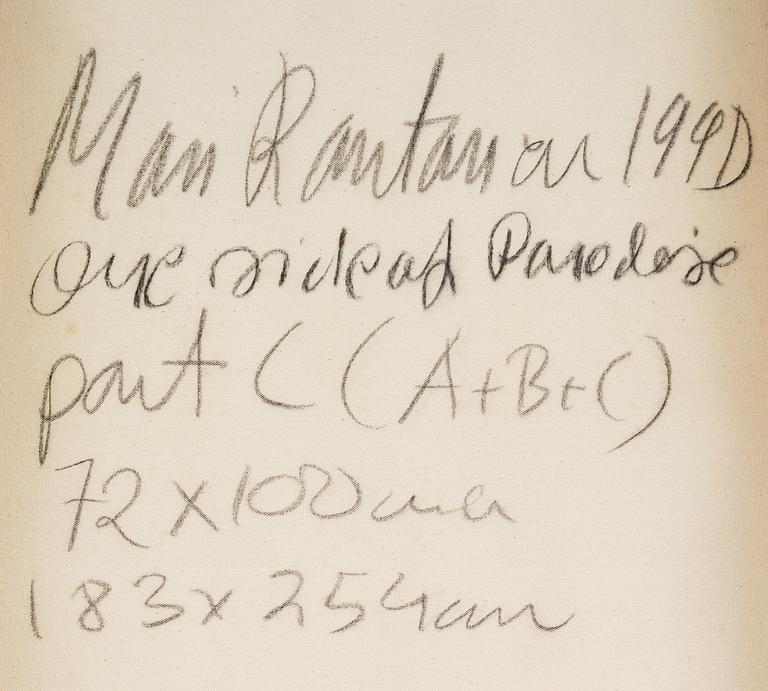 Mari Rantanen 1990
One side of Paradise
part C (A+B+C)
72 x 100
183 x 254 cm